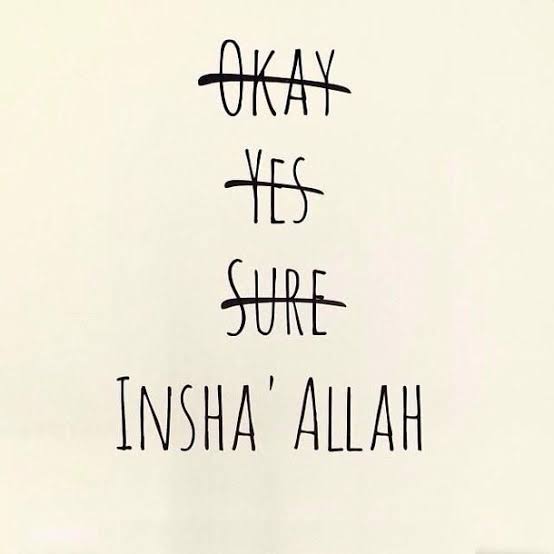 OKAY
YES
SURE
INSHA'ALLAH